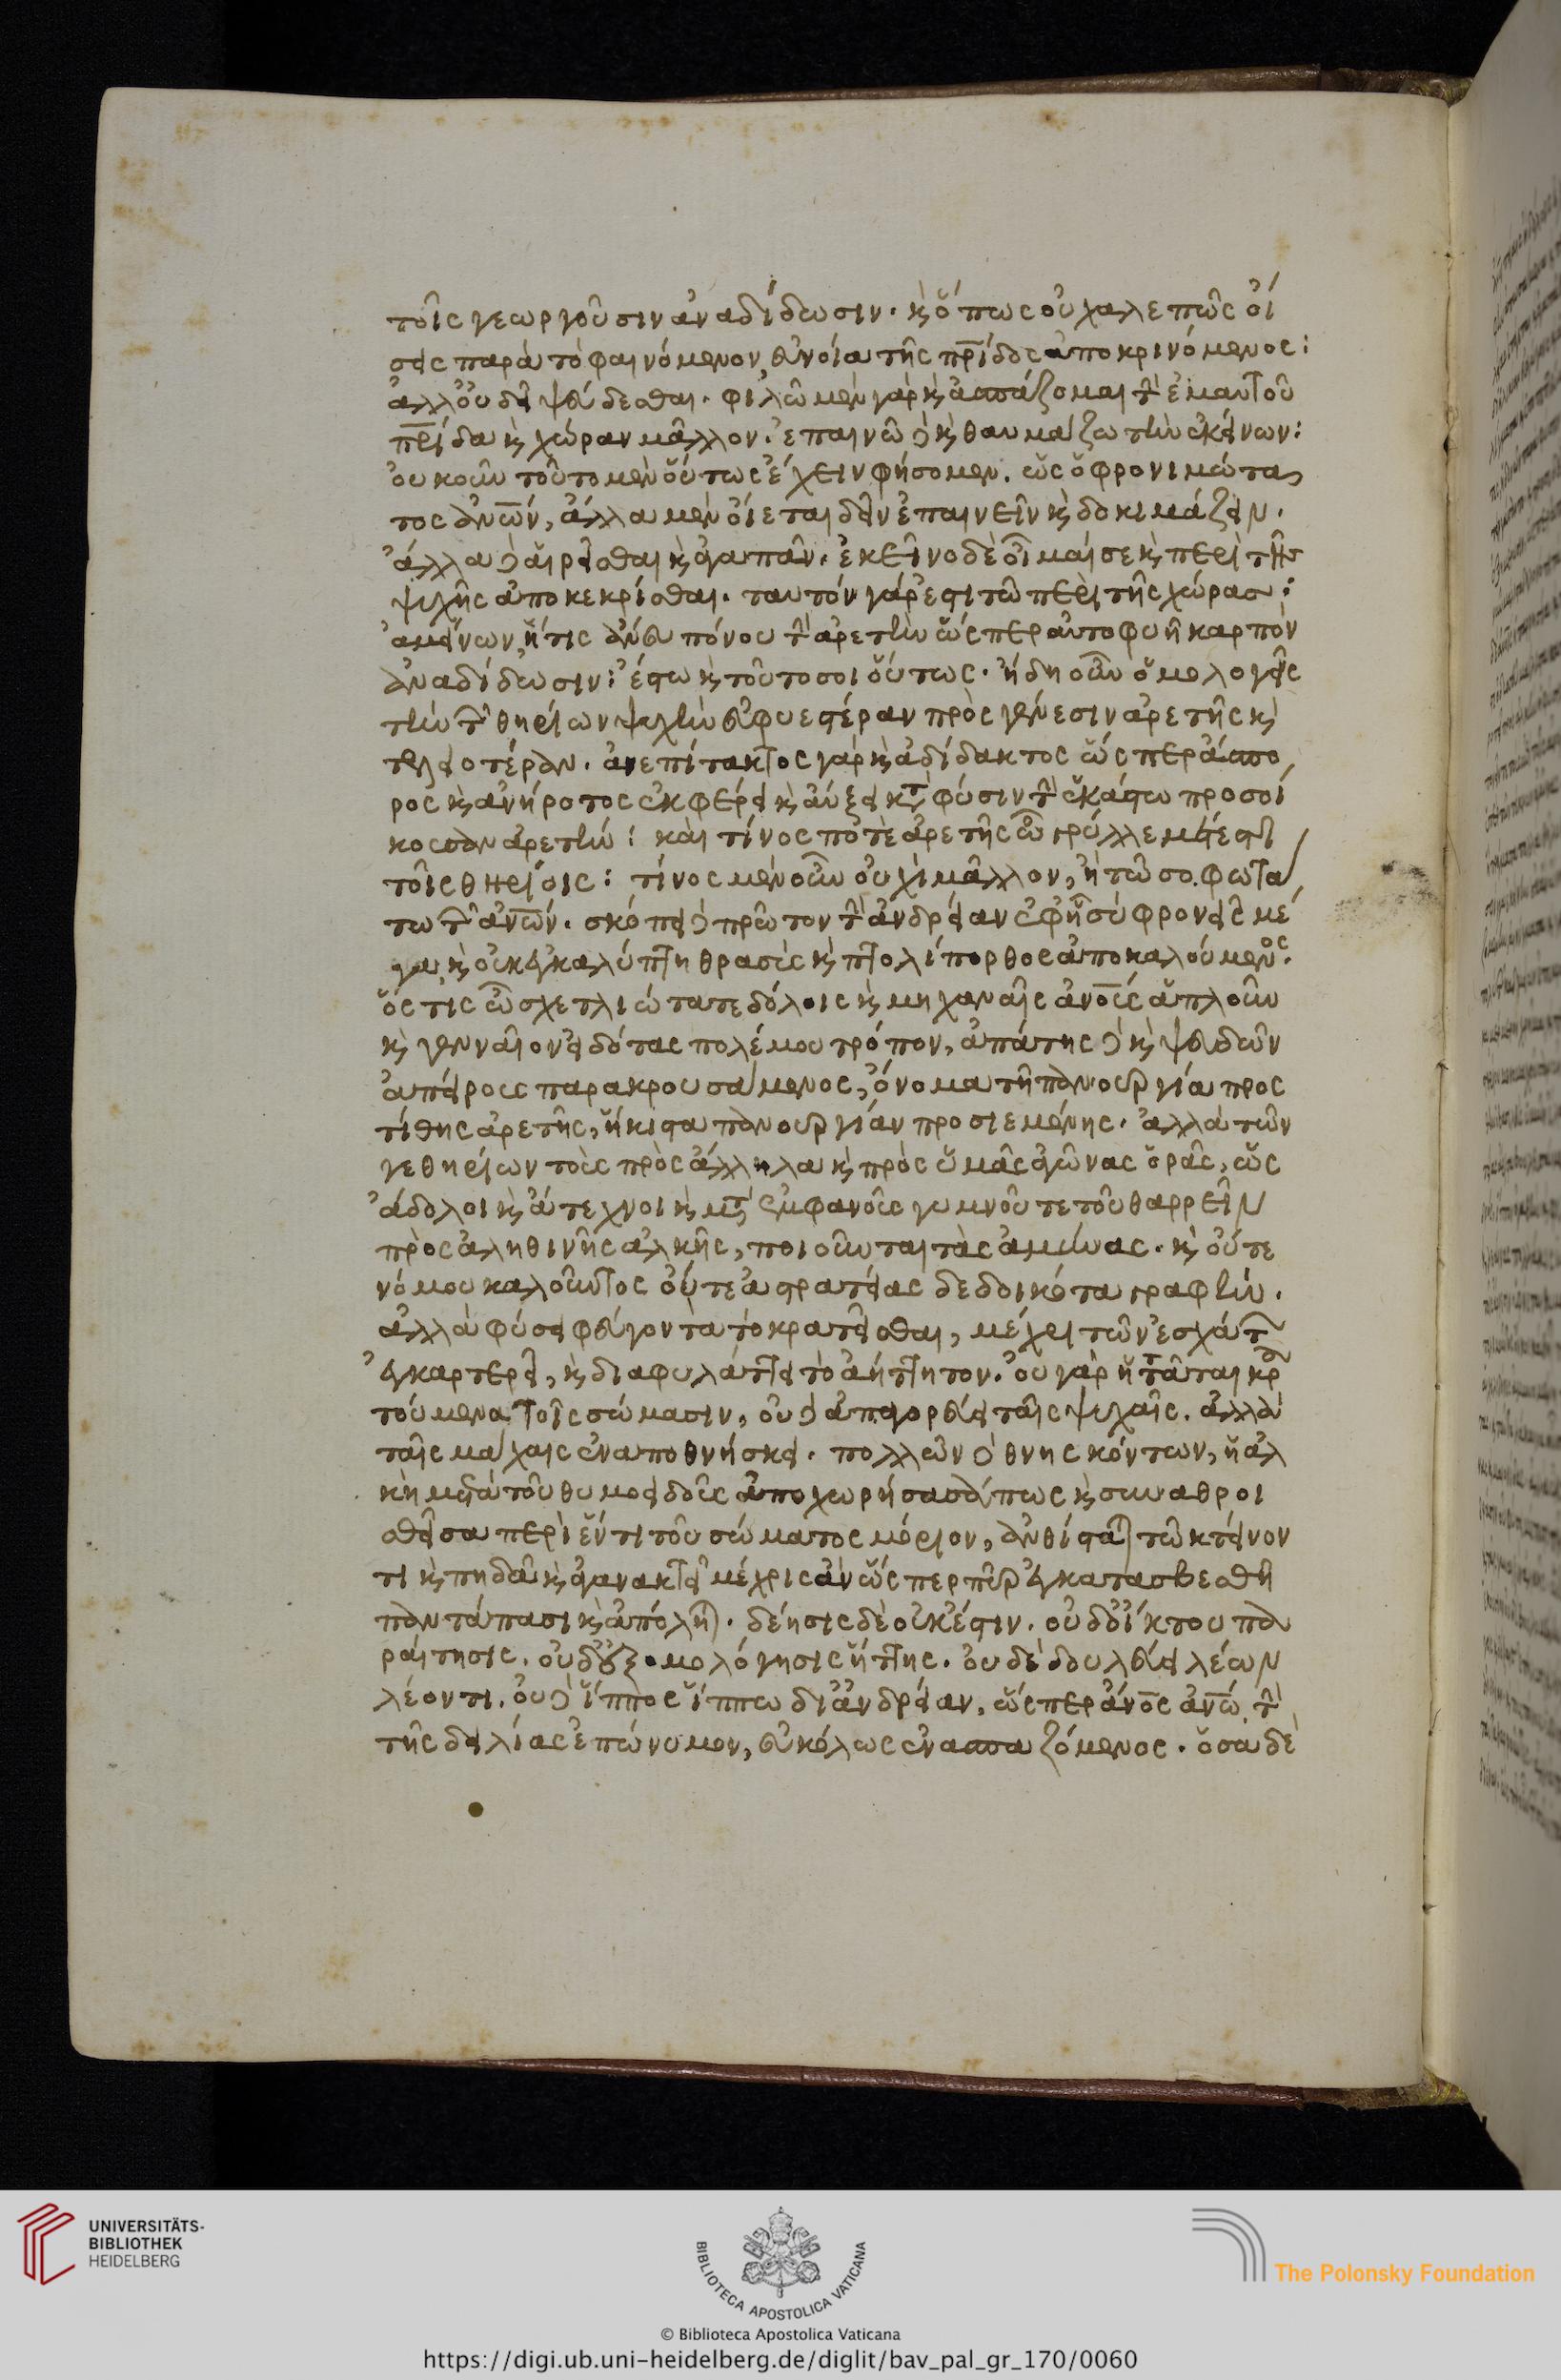 τοῖς γεωργοῦσιν ἀναδίδωσιν. κὶ ὅπως οὐ χαλεπῶς οἴ
σεις παρὰ τὸ φαινόμενον, εὐνοία τῆς πρ̅ίδος ἀποκρινόμενος:
ἀλλ' οὐδεῖ ψεύδεσθαι. φιλῶ μὲν γὰρ κὶ ἀσπάζομαι τὴν ἐμαυτοῦ
πρ̅ίδα κὶ χώραν μᾶλλον. ἐπαινῶ δὲ κὶ θαυμάζω τὴν ἐκείνων:
οὐκοῦν τοῦτο μὲν οὕτως ἔχειν φήσομεν. ὡς ὁ φρονιμώτα
τος ἀν̅ων, ἄλλα μὲν οἴεται δεῖν ἐπαινεῖν κὶ δοκιμάζειν.
ἄλλα δὲ αἱρεῖσθαι κὶ ἀγαπᾶν. ἐκεῖνο δὲ οἶμαί σε κὶ περὶ τῆς
ψυχῆς ἀποκεκρίσθαι. ταυτόν γάρ ἐστι τῶ περὶ τῆς χώρας:
ἀμείνων, ἥτις ἄνευ πόνου τὴν ἀρετὴν ὥσπερ αὐτοφυῆ καρπὸν
ἀναδίδωσιν: ἔστω κὶ τοῦτό σοι οὕτως. ἤδη οὖν ὁμολογεῖς
τὴν τῶν θηρίων ψυχὴν εὐφυεστέραν πρὸς γένεσιν ἀρετῆς κὶ
τελειοτέραν. ἀνεπίτακτος γὰρ κὶ ἀδίδακτος ὥσπερ ἄσπο
ρος κὶ ἀνήροτος ἐκφέρει κὶ αὔξει κτ̀ φύσιν τὴν ἑκάστω προσσή
κουσαν ἀρετὴν: καὶ τίνος ποτὲ ἀρετῆς ὦ γρύλλε μέτεστι
τοῖς θηρίοις: τίνος μὲν οὖν οὐχὶ μᾶλλον, ἢ τῶ σοφωτά
τω τῶν ἀν̅ων. σκόπει δὲ πρῶτον τὴν ἀνδρείαν ἐφ' ἧ σὺ φρονεῖς μέ
γα, κὶ οὐκ ἐγκαλύπτη θρασὺς κὶ πτολίπορθος ἀποκαλούμενος.
ὅστις ὦ σχετλιώτατε δόλοις κὶ μηχαναῖς ἀν̅ους ἁπλοῦν
κὶ γενναῖον εἰδότας πολέμου τρόπον, ἀπάτης δὲ κὶ ψευδῶν
ἀπείρους παρακρουσάμενος, ὄνομα τῆ πανουργία προς
τίθης ἀρετῆς, ἥκιστα πανουργίαν προσιεμένης. ἀλλὰ τῶν
γε θηρίων τοὺς πρὸς ἄλληλα κὶ πρὸς ὑμᾶς ἀγῶνας ὁρᾶς, ὡς
ἄδολοι κὶ ἄτεχνοι κὶ μτ̀ ἐμφανοῦς γυμνοῦ τε τοῦ θαρρεῖν
πρὸς ἀληθινῆς ἀλκῆς, ποιοῦνται τὰς ἀμύνας. κὶ οὔτε
νόμου καλοῦντος οὔτε ἀστρατείας δεδοικότα γραφὴν.
ἀλλὰ φύσει φεύγοντα τὸ κρατεῖσθαι, μέχρι τῶν ἐσχάτων
ἐγκαρτερεῖ, κὶ διαφυλάττει τὸ ἀήττητον. οὐ γὰρ ἡττᾶται κρα
τούμενα τοῖς σώμασιν, οὐδὲ ἀπαγορεύει ταῖς ψυχαῖς. ἀλλὰ
ταῖς μάχαις ἐναποθνήσκει. πολλῶν δὲ θνησκόντων, ἡ ἀλ
κὴ μετὰ τοῦ θυμοειδοῦς ἀποχωρήσασά πως κὶ συναθροι
σθεῖσα περὶ ἕν τι τοῦ σώματος μόριον, ἀνθίσταται τῶ κτείνον
τι κὶ πηδᾶ κὶ ἀγανακτεῖ μέχρις ἂν ὥσπερ πῦρ ἐγκατασβεσθῆ
παντάπασι κὶ ἀπόληται. δέησις δὲ οὐκ ἔστιν. οὐδ' οἴκτου πα
ραίτησις. οὐδ' ἐξομολόγησις ἥττης. οὐδὲ δουλεύει λέων
λέοντι. οὐδὲ ἵππος ἵππω δι' ἀνδρείαν, ὥσπερ ἄν̅ος ἀν̅ω. τὴν
τῆς δειλίας ἐπώνυμον, εὐκόλως ἐνασπαζόμενος. ὅσα δὲ
UNIVERSITÄTS-
BIBLIOTHEK
HEIDELBERG
BIBLIOTECA APOSTOLICA VATICANA
The Polonsky Foundation
© Biblioteca Apostolica Vaticana
https://digi.ub.uni-heidelberg.de/diglit/bav_pal_gr_170/0060